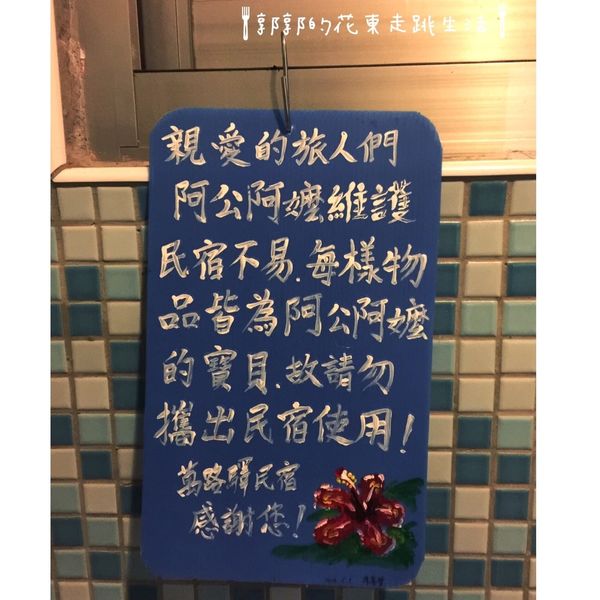 郭郭的花東走跳生活
親愛的旅人們
阿公阿嬤維護
民宿不易.每樣物
品皆為阿公阿嬤
的寶貝.故請勿
攜出民宿使用!
萬路驛民宿
感謝您!